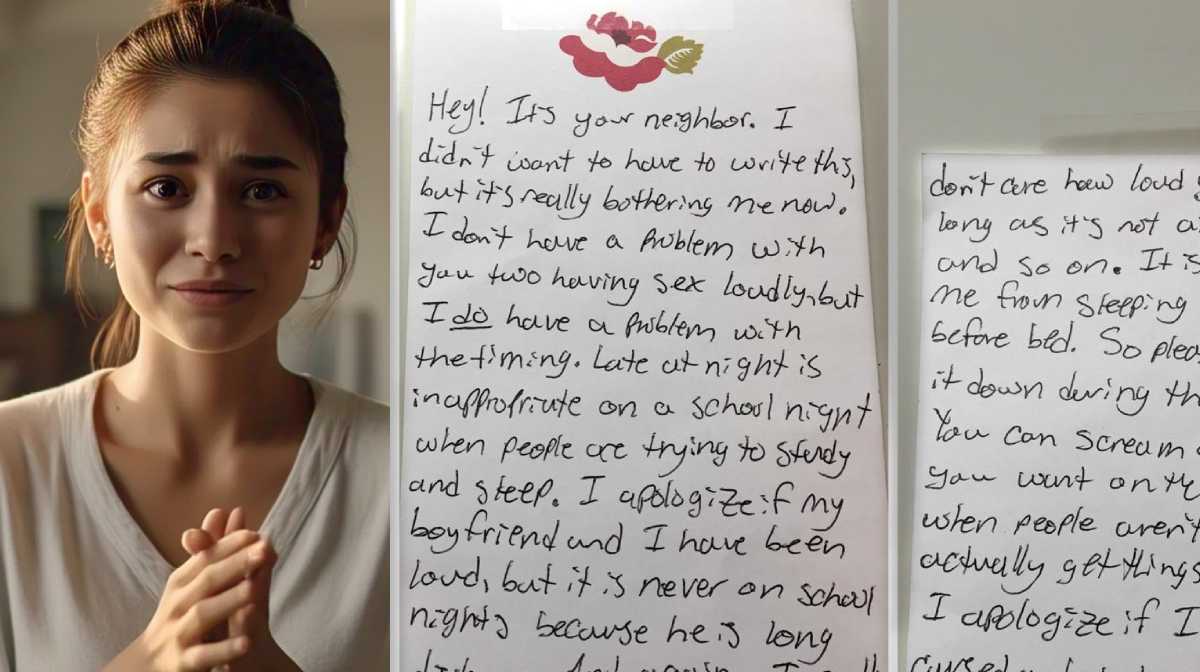 Hey! It's your neighbor. I
didn't want to have to write this,
but it's really bothering me now.
I don't have a problem with
you two having sex loudly, but
I do have a problem with
the timing. Late at night is
inappropriate on a school night
when people are trying to study
and sleep. I apologize if my
boyfriend and I have been
loud, but it is never on school
nights because he is long
don't care how loud
long as it's not
and so on. It is
me from sleeping
before bed. So
it down during
You can scream
you want on
when people aren't
actually get things
I apologize if I